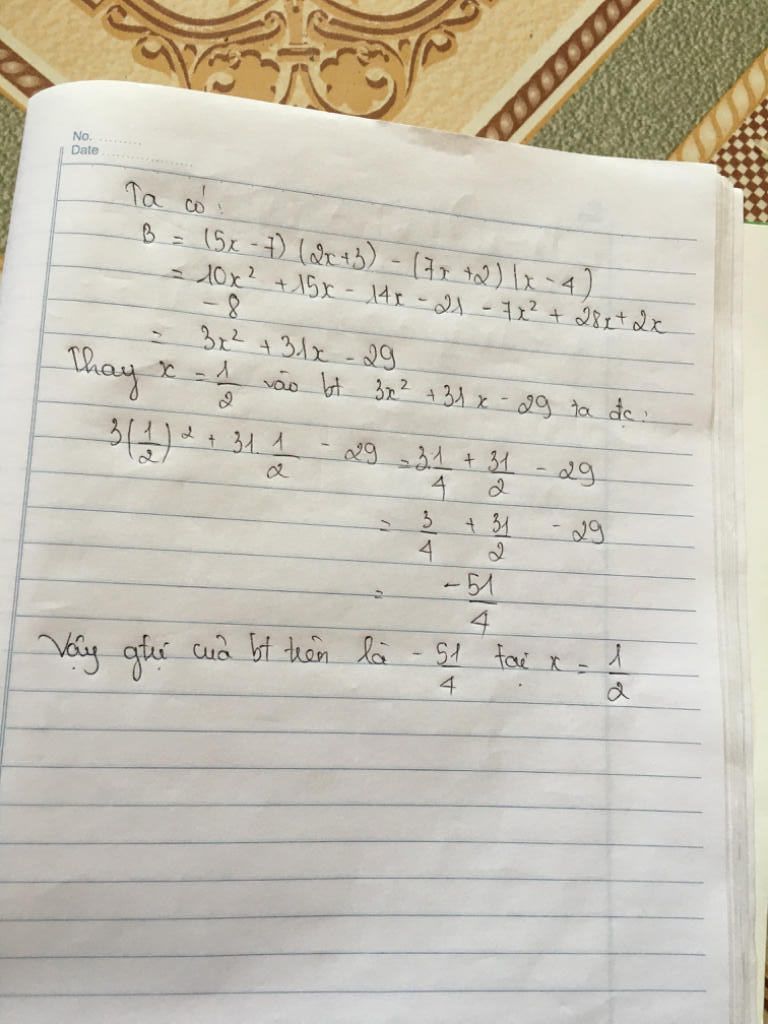 No. ........
Date ................
Ta có:
B = (5x - 7) (2x + 3) - (7x + 2) (x - 4)
= 10x² + 15x - 14x - 21 - 7x² + 28x + 2x
- 8
= 3x² + 31x - 29
Thay x = 1/2 vào bt 3x² + 31x - 29 ta đc:
3(1/2)² + 31.1/2 - 29 = 3.1/4 + 31/2 - 29
= 3/4 + 31/2 - 29
= -51/4
Vậy gtrị của bt trên là -51/4 tại x = 1/2